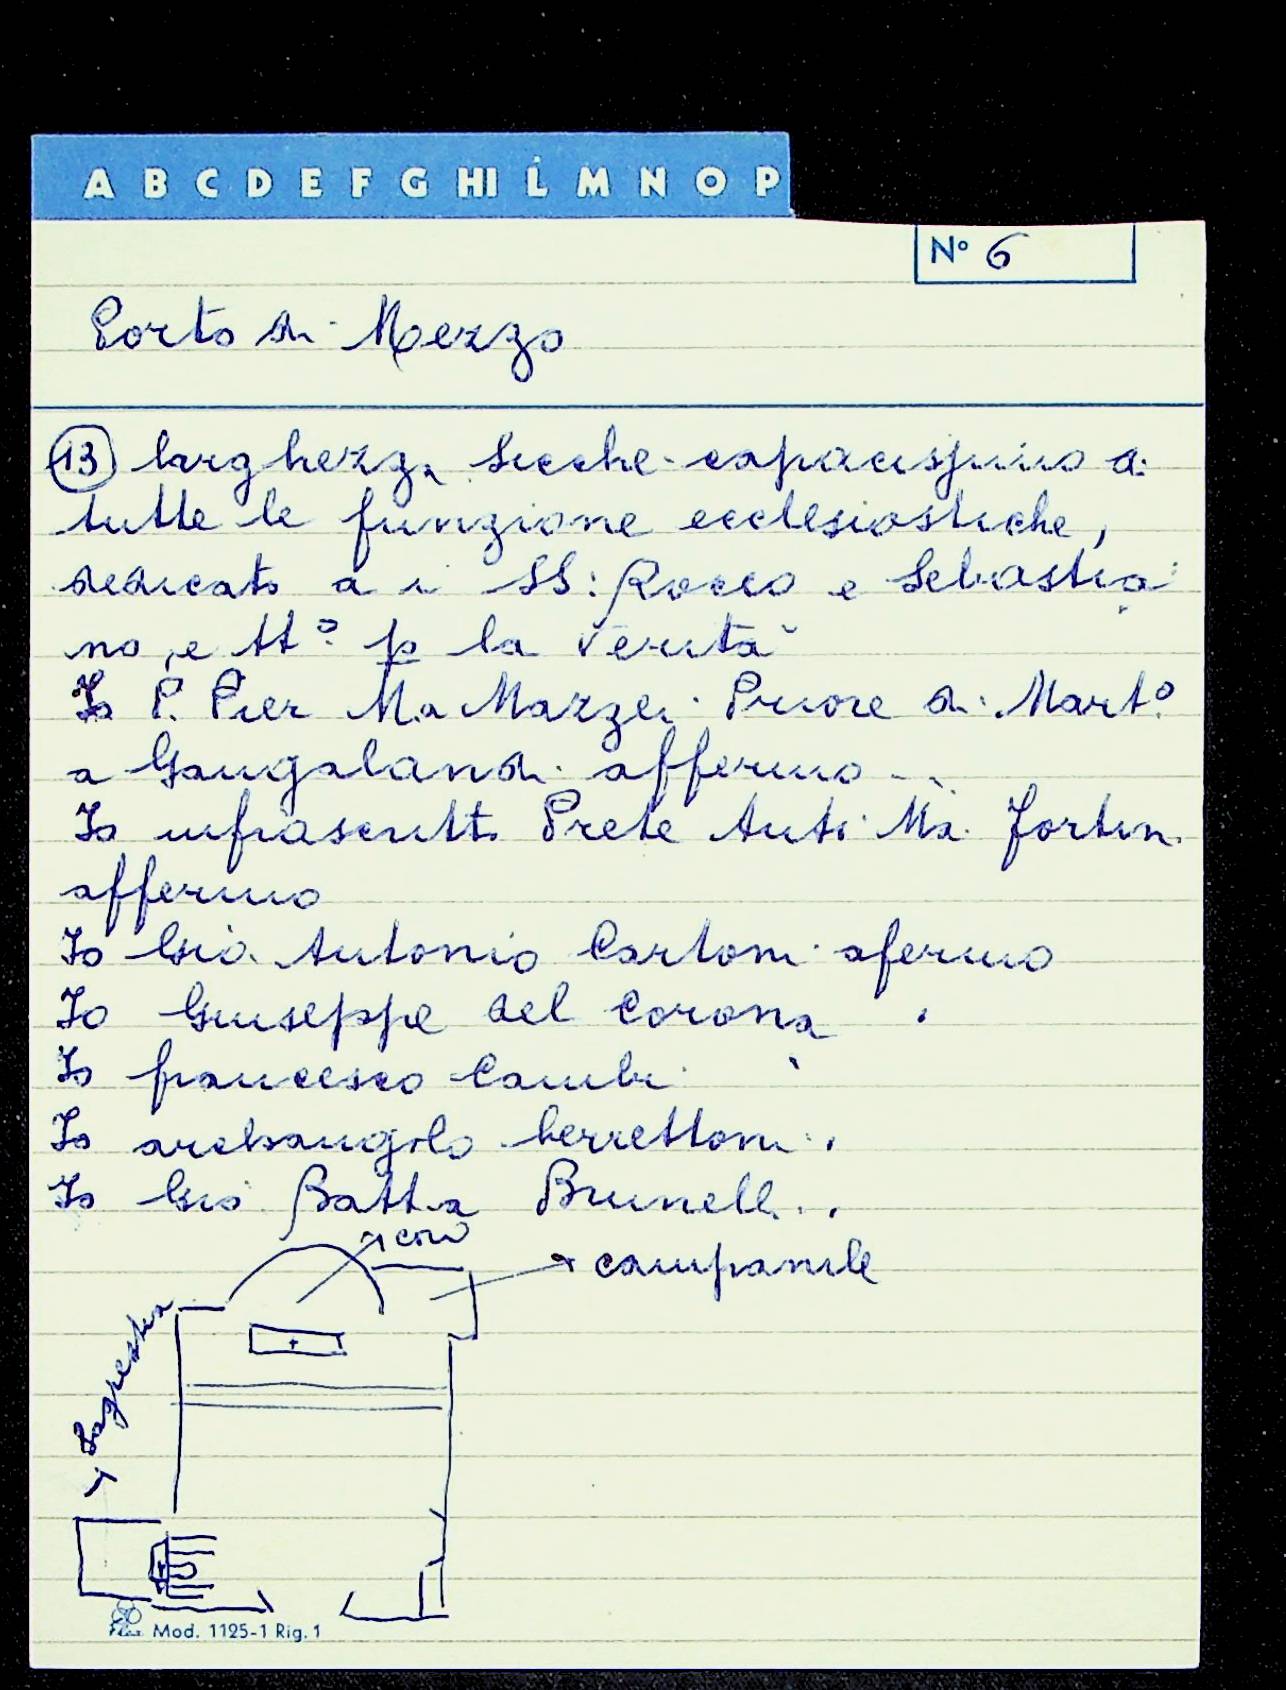 A B C D E F G HI L M N O P
N° 6
Porto di Mezzo
13 larghezza sicche capacissimo a
tutte le funzione ecclesiastiche,
dedicato a i SS: Rocco e Sebastia
no, e tt° p la verità
Io P. Pier Ma Mazzei Priore di Mart°
a Gangalandi affermo
Io infrascritto Prete Ant° Ma Fortini
affermo
Io Gio. Antonio Cartoni afermo
Io Giuseppe del Corona
Io francesco Cambi
Io archangolo berrettoni
Io Gio Batta Brunelli
coro
campanile
Sagrestia
Mod. 1125-1 Rig. 1